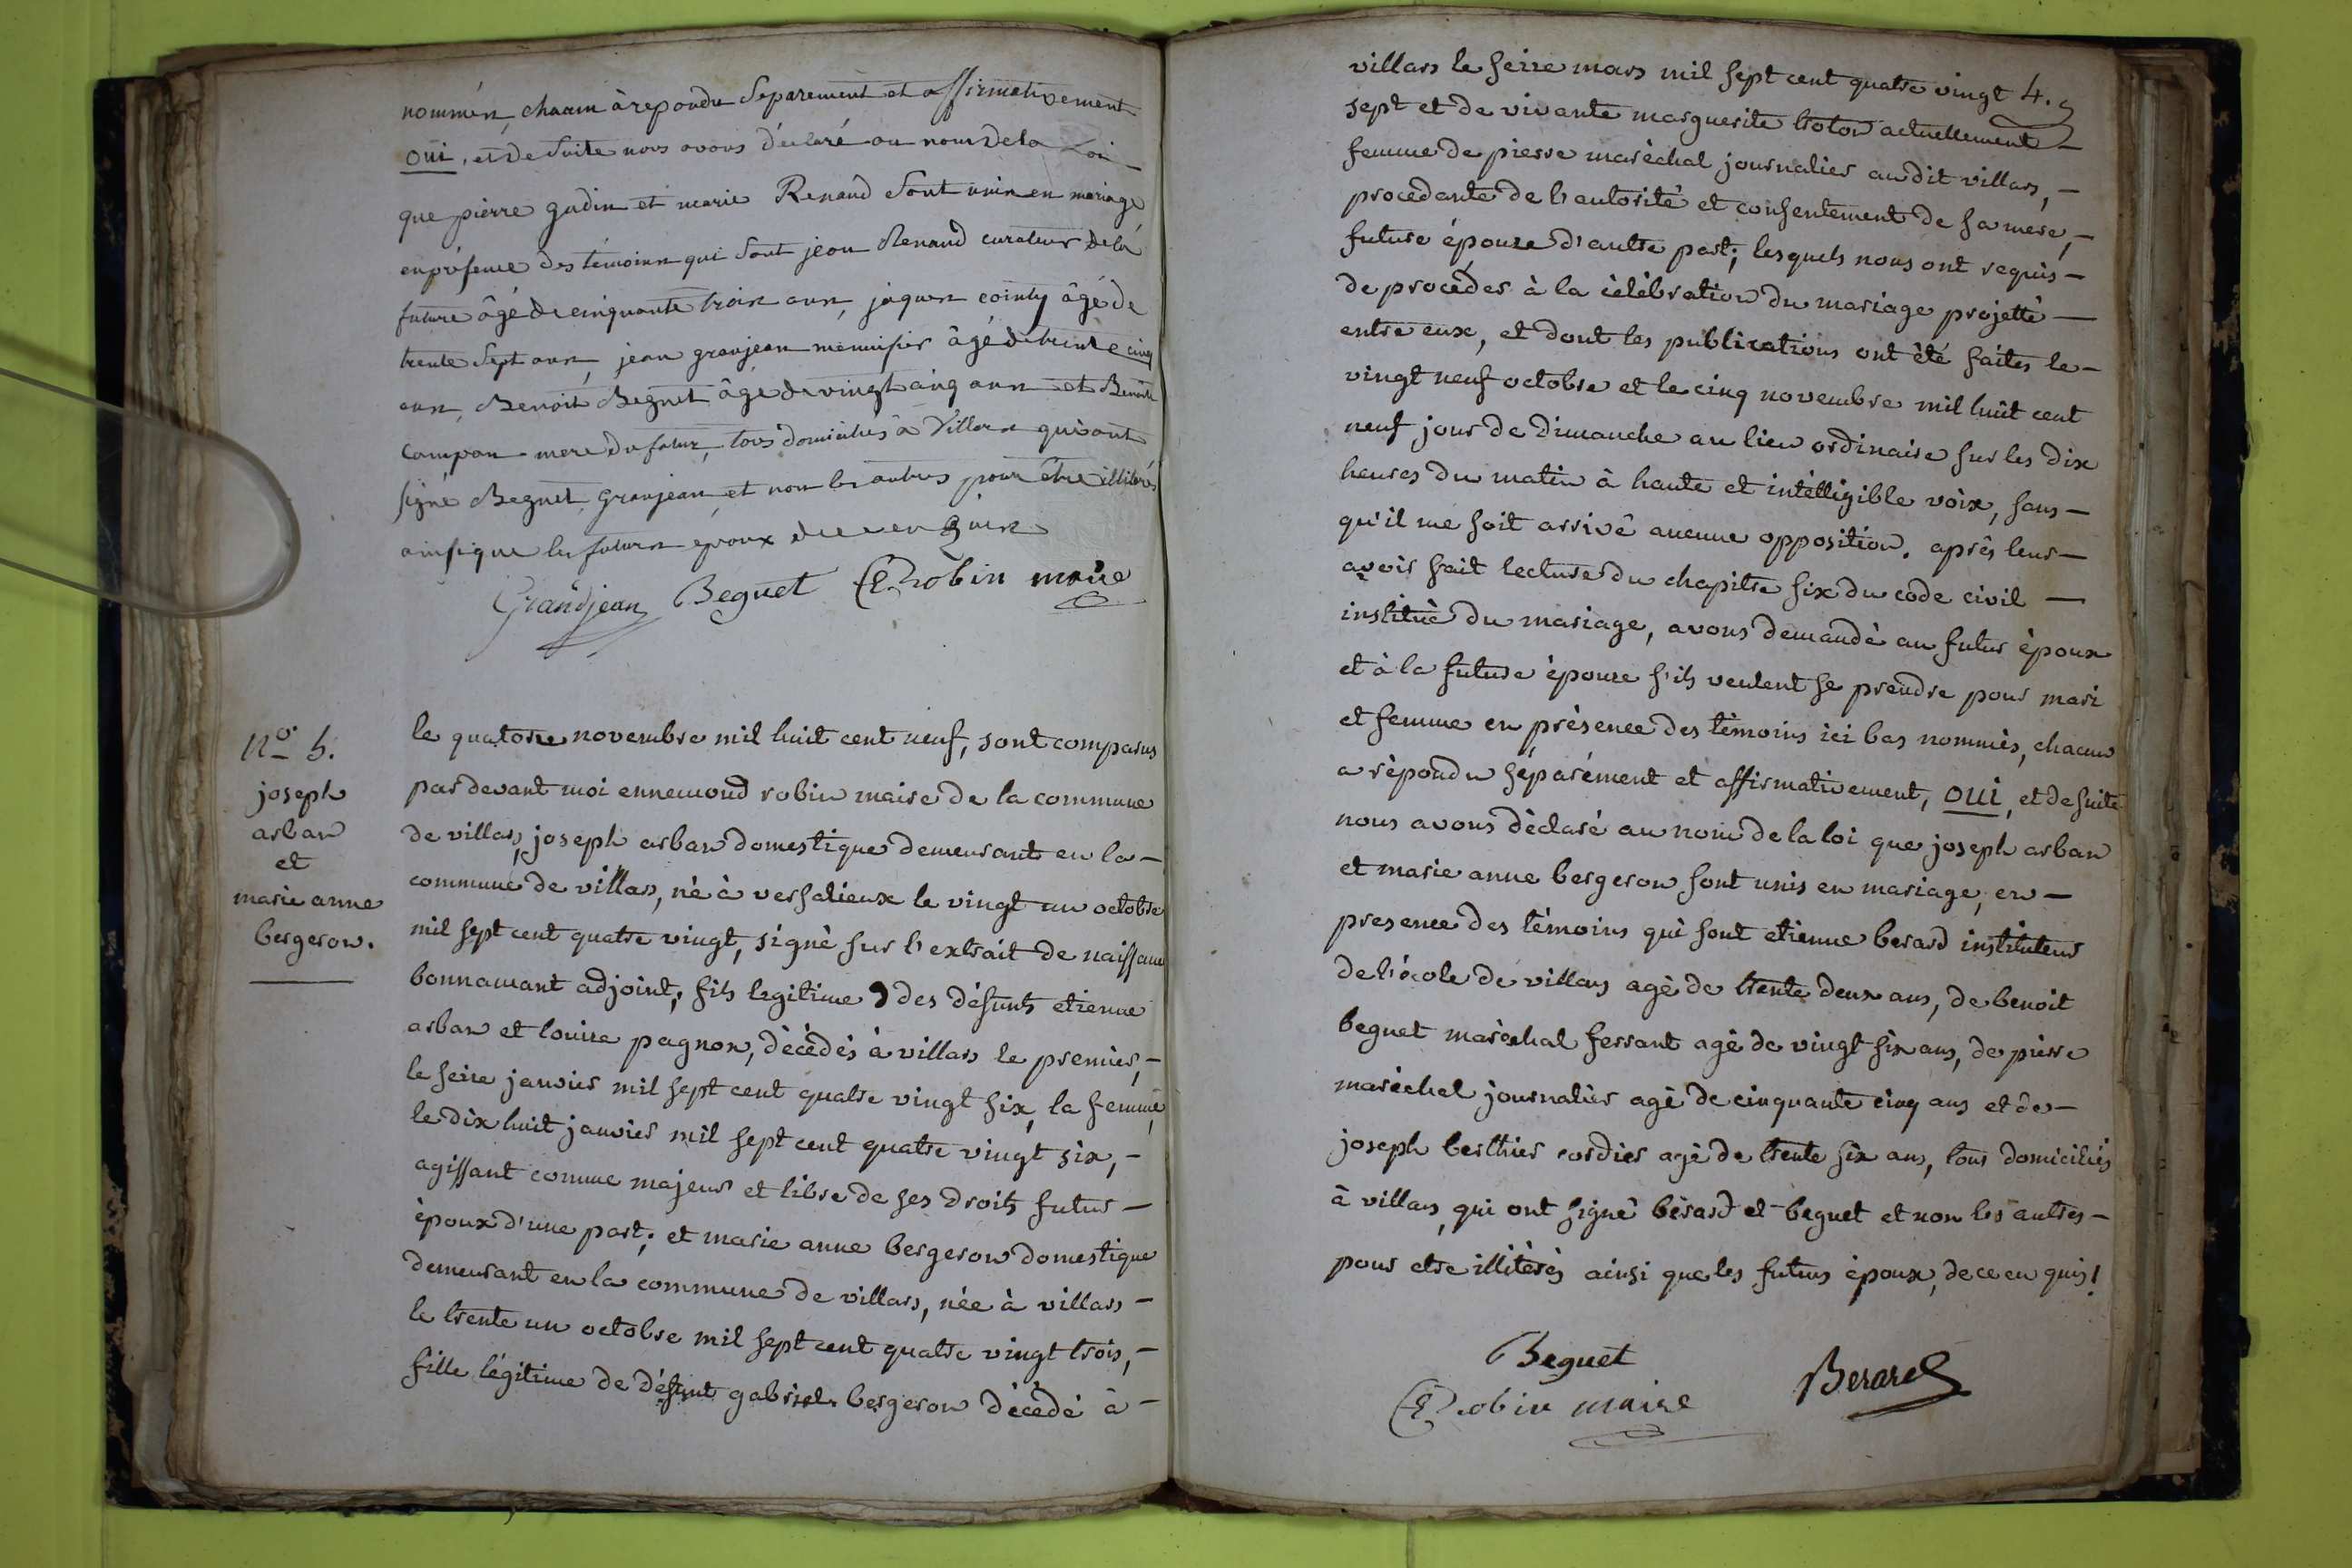 nommés, chacun à repondu Separement et affirmativement
oui, et De Suite nous avons déclaré au nom De la Loi
que pierre gudin et marie Renand Sont unis en mariage
en présence des témoins qui Sont jean Renand curateur de la
future âgé de cinquante trois ans, jaques cointy âgé de
trente Sept ans, jean granjean menuisier âgé de trente cinq
ans, Benoit Beguet âgé de vingt cinq ans et Benoite
campan mere du futur, tous domiciliés à Villars qui ont
signé Beguet, granjean, et non les autres pour être illiterés
ainsi que les futurs époux de ce enquis
Grandjean Beguet E Robin maire
nº 5.
joseph
arban
et
marie anne
bergeron.
le quatorze novembre mil huit cent neuf, sont comparus
par devant moi ennemond robin maire de la commune
de villars, joseph arban domestique demeurant en la
commune de villars, né à versalieux le vingt un octobre
mil sept cent quatre vingt, signé sur l'extrait de naissance
bonnamant adjoint; fils legitime des défunts etienne
arban et louise pagnon, décédés à villars le premier,
le seize janvier mil sept cent quatre vingt six, la femme,
le dix huit janvier mil sept cent quatre vingt six,
agissant comme majeur et libre de ses droits futur
époux d'une part; et marie anne bergeron domestique
demeurant en la commune de villars, née à villars
le trente un octobre mil sept cent quatre vingt trois,
fille légitime de défunt gabriel bergeron décédé à
villars le seize mars mil sept cent quatre vingt 4.
sept et de vivante marguerite troton actuellement
femme de pierre maréchal journalier audit villars,
procedante de l'autorité et consentement de sa mere,
future épouse d'autre part; lesquels nous ont requis
de procéder à la célébration du mariage projetté
entre eux, et dont les publications ont été faites le
vingt neuf octobre et le cinq novembre mil huit cent
neuf jour de dimanche au lieu ordinaire sur les dix
heures du matin à haute et intelligible voix, sans
qu'il me soit arrivé aucune opposition. après leur
avoir fait lecture du chapitre six du code civil
institué du mariage, avons demandé au futur époux
et à la future épouse s'ils veulent se prendre pour mari
et femme en présence des témoins ici bas nommés, chacun
a répondu séparément et affirmativement, oui, et de suite
nous avons déclaré au nom de la loi que joseph arban
et marie anne bergeron sont unis en mariage, en
presence des témoins qui sont etienne berard instituteur
de l'école de villars agé de trente deux ans, de benoit
beguet maréchal ferrant agé de vingt six ans, de pierre
maréchal journalier agé de cinquante cinq ans et de
joseph berthier cordier agé de trente six ans, tous domiciliés
à villars, qui ont signé bérard et beguet et non les autres
pour etre illitérés ainsi que les futurs époux, de ce enquis!
Beguet
E Robin maire Berard